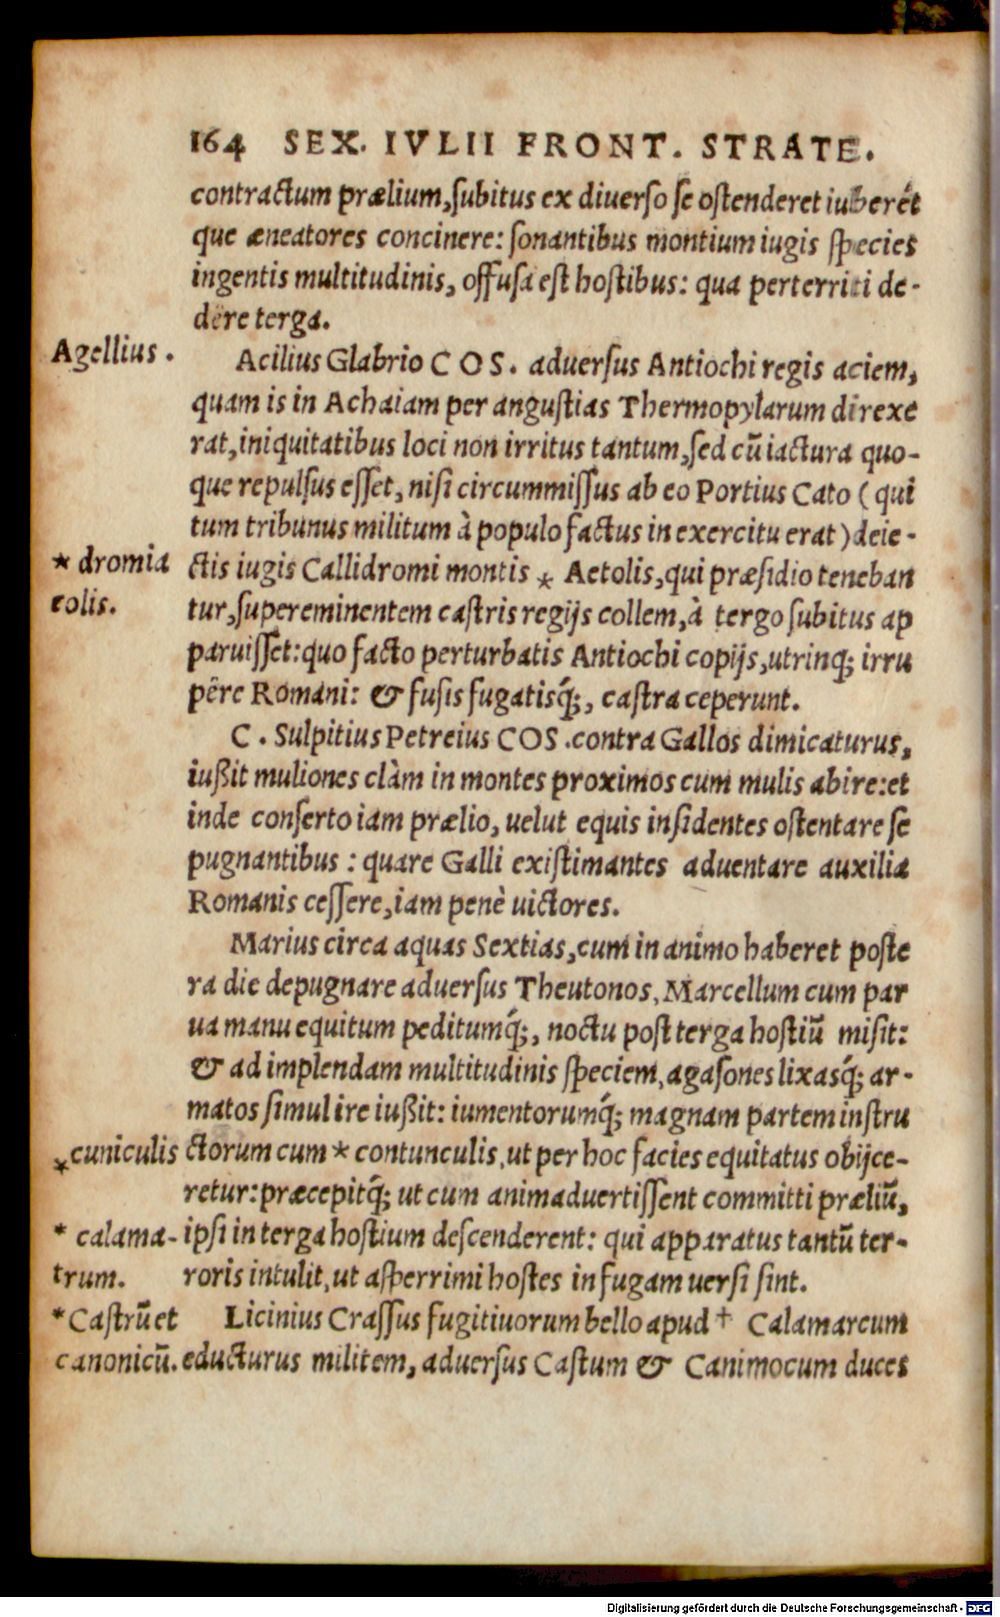 164 SEX. IVLII FRONT. STRATE.
contractum prælium, subitus ex diuerso se ostenderet iuberét
que æneatores concinere: sonantibus montium iugis species
ingentis multitudinis, offusa est hostibus: qua perterriti de-
dêre terga.
Agellius.
Acilius Glabrio COS. aduersus Antiochi regis aciem,
quam is in Achaiam per angustias Thermopylarum direxe
rat, iniquitatibus loci non irritus tantum, sed cū iactura quo-
que repulsus esset, nisi circummissus ab eo Portius Cato (qui
tum tribunus militum à populo factus in exercitu erat) deie-
* dromia
ctis iugis Callidromi montis * Aetolis, qui præsidio teneban
eolis.
tur, supereminentem castris regijs collem, à tergo subitus ap
paruisset: quo facto perturbatis Antiochi copijs, utrinq; irru
pêre Romani: & fusis fugatisq́;, castra ceperunt.
C. Sulpitius Petreius COS. contra Gallos dimicaturus,
iußit muliones clàm in montes proximos cum mulis abire: et
inde conserto iam prælio, uelut equis insidentes ostentare se
pugnantibus: quare Galli existimantes aduentare auxilia
Romanis cessere, iam penè uictores.
Marius circa aquas Sextias, cum in animo haberet poste
ra die depugnare aduersus Theutonos, Marcellum cum par
ua manu equitum peditumq́;, noctu post terga hostiū misit:
& ad implendam multitudinis speciem, agasones lixasq́; ar-
matos simul ire iußit: iumentorumq́; magnam partem instru
*cuniculis
ctorum cum * contunculis, ut per hoc facies equitatus obijce-
retur: præcepitq́; ut cum animaduertissent committi præliū,
* calama-
ipsi in terga hostium descenderent: qui apparatus tantū ter-
trum.
roris intulit, ut asperrimi hostes in fugam uersi sint.
*Castrū et
Licinius Crassus fugitiuorum bello apud † Calamarcum
canonicū.
educturus militem, aduersus Castum & Canimocum duces
Digitalisierung gefördert durch die Deutsche Forschungsgemeinschaft - DFG